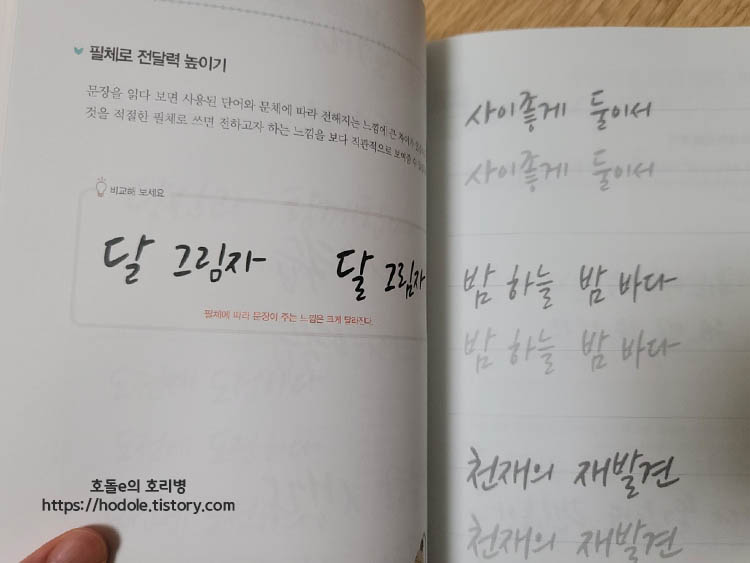 필체로 전달력 높이기
문장을 읽다 보면 사용된 단어와 문체에 따라 전해지는 느낌에 큰 차이가
것을 적절한 필체로 쓰면 전하고자 하는 느낌을 보다 직관적으로 보여줄 수
비교해 보세요
달 그림자 달 그림자
필체에 따라 문장이 주는 느낌은 크게 달라진다.
호돌e의 호리병
https://hodole.tistory.com
사이좋게 둘이서
사이좋게 둘이서
밤 하늘 밤 바다
밤 하늘 밤 바다
천재의 재발견
천재의 재발견